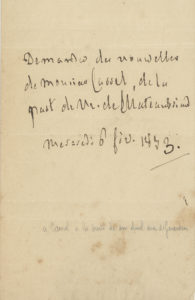 Demander des nouvelles
de monsieur Cassel, de la
part de Mr. de Chateaubriand
mercredi 6 fév. 1833.